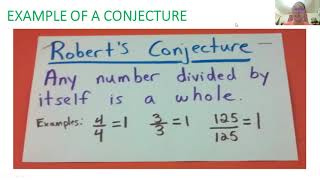 EXAMPLE OF A CONJECTURE
Robert's Conjecture
Any number divided by
itself is a whole.
Examples: 4/4 = 1 3/3 = 1 125/125 = 1